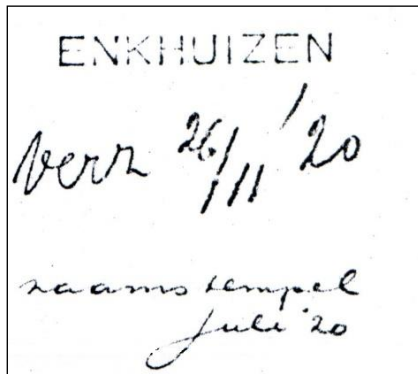 ENKHUIZEN
verz 26/11 '20
naamstempel
juli '20